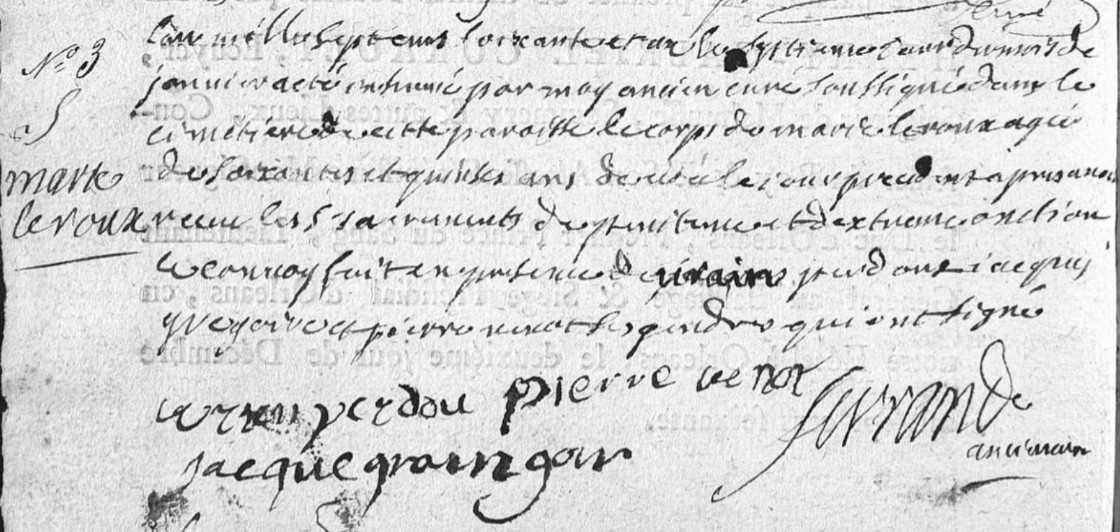 N.o 3
S
marie
leroux
L'an mille sept cens soixante et un le septieme jour du mois de
janvier a eté inhumé par moy ancien curé soussigné dans le
cimétiere de cette paroisse le corps de marie leroux agée
de soixantes et quinses ans decedé le jour precedent apres avoir
receu les sacrements de penitence et d'extreme onction
le convoy fait en presence de urain perdoux jacques
gregoire et pierre venot ses gendres qui ont signé
urien perdou pierre venot
jacque
ancien curé